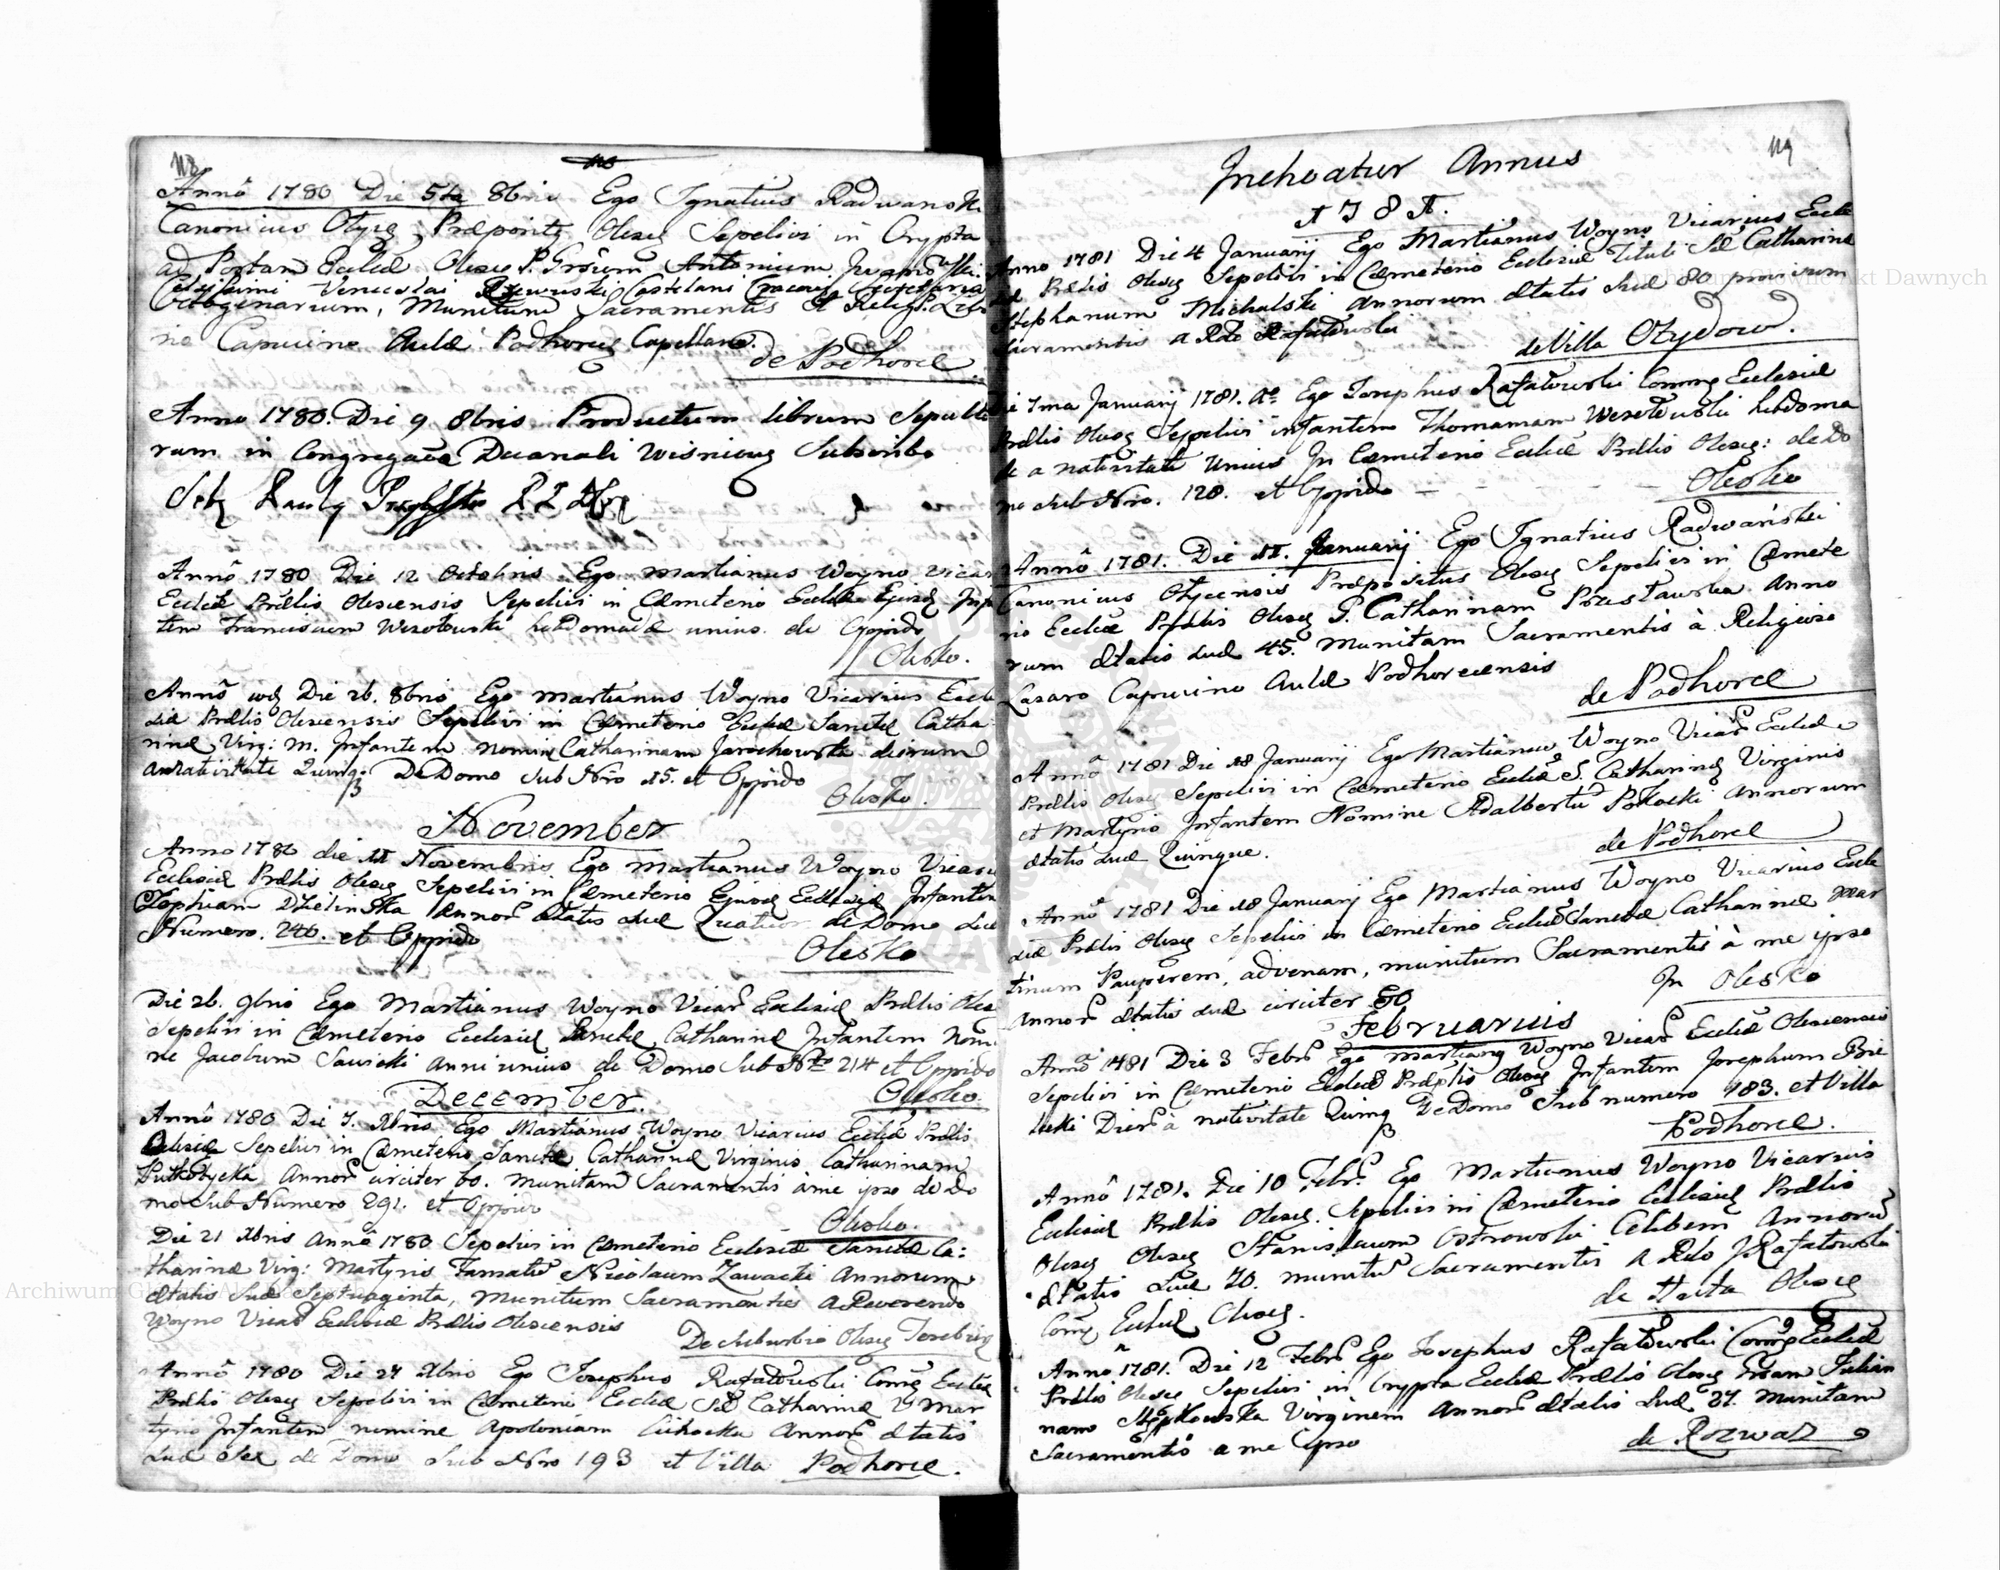 118
Annô 1780 Die 5ta 8bris Ego Ignatius Radwanski
Canonicus Olyce Præposit9 Olesc Sepelivi in Crypta
ad Portam Eccliæ Olesc P. Grosum Antonium
Celsissimi Venceslai Rzewuski Castelani Cracov
Octogenarium, Munitum Sacramentis Relig. P.
no Capucino Aulæ Podhorec Capellano.
de Podhorce
Anno 1780. Die 9 8bris Productum librum Sepulto
rum in Congregaõe Decanali Wisniov Subscribo
Annô 1780 Die 12 Octobris Ego Martianus Woyno Vicar
Eccliæ Prælis Olescensis Sepelivi in Cæmeterio Eccliæ Ejusd Infa
tem Franciscum Wesołowski hebdomadæ unius de Oppido
Olesko.
Annô eod Die 26. 8bris Ego Martianus Woyno Vicarius Eccle
siæ Prælis Olescensis Sepelivi in Cæmeterio Eccliæ Sanctæ Catha
rinæ Virg: M. Infantem nomine Catharinam Jarochowska dierum
a nativitate Quinq; De Domo Sub Nro 15. et Oppido
Olesko.
November
Anno 1780 die 11 Novembris Ego Martianus Woyno Vicari
Ecclesiæ Prælis Olesc Sepelivi in Cæmeterio Ejusd Ecclesiæ Infantem
Zophiam Zielinska Annor ætatis suæ Quatuor de Domo sub
Numero. 240. et Oppido
Olesko
Die 26. 9bris Ego Martianus Woyno Vicar Ecclesiæ Prælis Oles
Sepelivi in Cæmeterio Ecclesiæ Sanctæ Catharinæ Infantem Nomi
ne Jacobum Sawicki anni unius de Domo Sub Nro 214 et Oppido
Olesko.
December.
Annô 1780 Die 7. Xbris Ego Martianus Woyno Vicarius Eccliæ Prælis
Olesc Sepelivi in Cæmeterio Sanctæ Catharinæ Virginis Catharinam
Annor circiter 60. munitam Sacramentis a me ipso de do
mo Sub Numero 291. et Oppido
Olesko.
Die 21 Xbris Annô 1780 Sepelivi in Cæmeterio Ecclesiæ Sanctæ Ca:
tharinæ Virg: Martyris Famatũ Nicolaum Zawacki Annorum
ætatis suæ Septuaginta, Munitum Sacramentis a Reverendo
Woyno Vicar Ecclesiæ Prælis Olescensis
De Suburbio Olesc
Annô 1780 Die 27 Xbris Ego Josephus Rafałowski Com Eccliæ
Prælis Olesc Sepelivi in Cæmeterio Eccliæ Sæ Catharinæ V Mar
tyris Infantem nomine Apoloniam Cichocka Annor ætatis
suæ Sex de Domo Sub Nro 193 et Villa Podhorce.
119
Inchoatur Annus
1781.
Anno 1781 Die 4 Januarij Ego Martianus Woyno Vicarius Eccle
siæ Prælis Olesc Sepelivi in Cæmeterio Ecclesiæ Tituli Sæ Catharinæ
Stephanum Michalski Annorum ætatis suæ 80 provisum
Sacramentis a Rdo Rafałowski
de Villa Ożydow.
Die 7ma Januarij 1781. Ao Ego Josephus Rafałowski Comm Ecclesiæ
Prælis Olesc Sepelivi infantem Thomamam Wesołowski hebdoma
dæ a nativitate Unius In Cæmeterio Eccliæ Prælis Olesc: de Do
mo Sub Nro. 128. et Oppido
Olesko
Annô 1781. Die 11. Januarij Ego Ignatius Radwański
Canonicus Olycensis Præpositus Olesc Sepelivi in Cæmete
rio Eccliæ Prælis Olesc G. Catharinam Przestawska Anno
rum ætatis suæ 45. Munitam Sacramentis à Religioso
Lazaro Capucino Aulæ Podhorcensis
de Podhorce
Annô 1781 Die 18 Januarij Ego Martianus Woyno Vicar Eccliæ
Prælis Olesc Sepelivi in Cæmeterio Eccliæ S. Catharinæ Virginis
et Martyris Infantem Nomine Adalbertũ Potocki Annorum
ætatis suæ Quinque.
de Podhorce
Annô 1781 Die 18 Januarij Ego Martianus Woyno Vicarius Eccle
siæ Prælis Olesc Sepelivi in Cæmeterio Eccliæ Sanctæ Catharinæ Mar
tinum Pauperem, advenam, munitum Sacramentis à me ipso
Annor ætatis suæ circiter 50
In Olesko
Februarius
Annô 1781 Die 3 Febr Ego Martian9 Woyno Vicar Eccliæ Olescensis
Sepelivi in Cæmeterio Eccliæ Prælis Olesc Infantem Josephum Bie
lecki Dier à nativitate Quinq De Domo Sub numero 183. et Villa
Podhorce.
Annô 1781. Die 10 Febr. Ego Martianus Woyno Vicarius
Ecclesiæ Prælis Olesc. Sepelivi in Cæmeterio Ecclesiæ Prælis
Olesc Stanislaum Ostrowski Celibem Annorũ
ætatis suæ 70. munitũ Sacramentis a Rdo J Rafałowski
Com Eccliæ Olesc.
de Huta Olesc
Annô 1781. Die 12 Febr Ego Josephus Rafałowski Com Eccliæ
Prælis Olesc Sepelivi in Crypta Eccliæ Prælis Olesc Grosam Julian
nam Virginem Annor ætatis suæ 27. Munitam
Sacramentis a me Ipso
de Rozwaz
Archiwum Główne Akt Dawnych